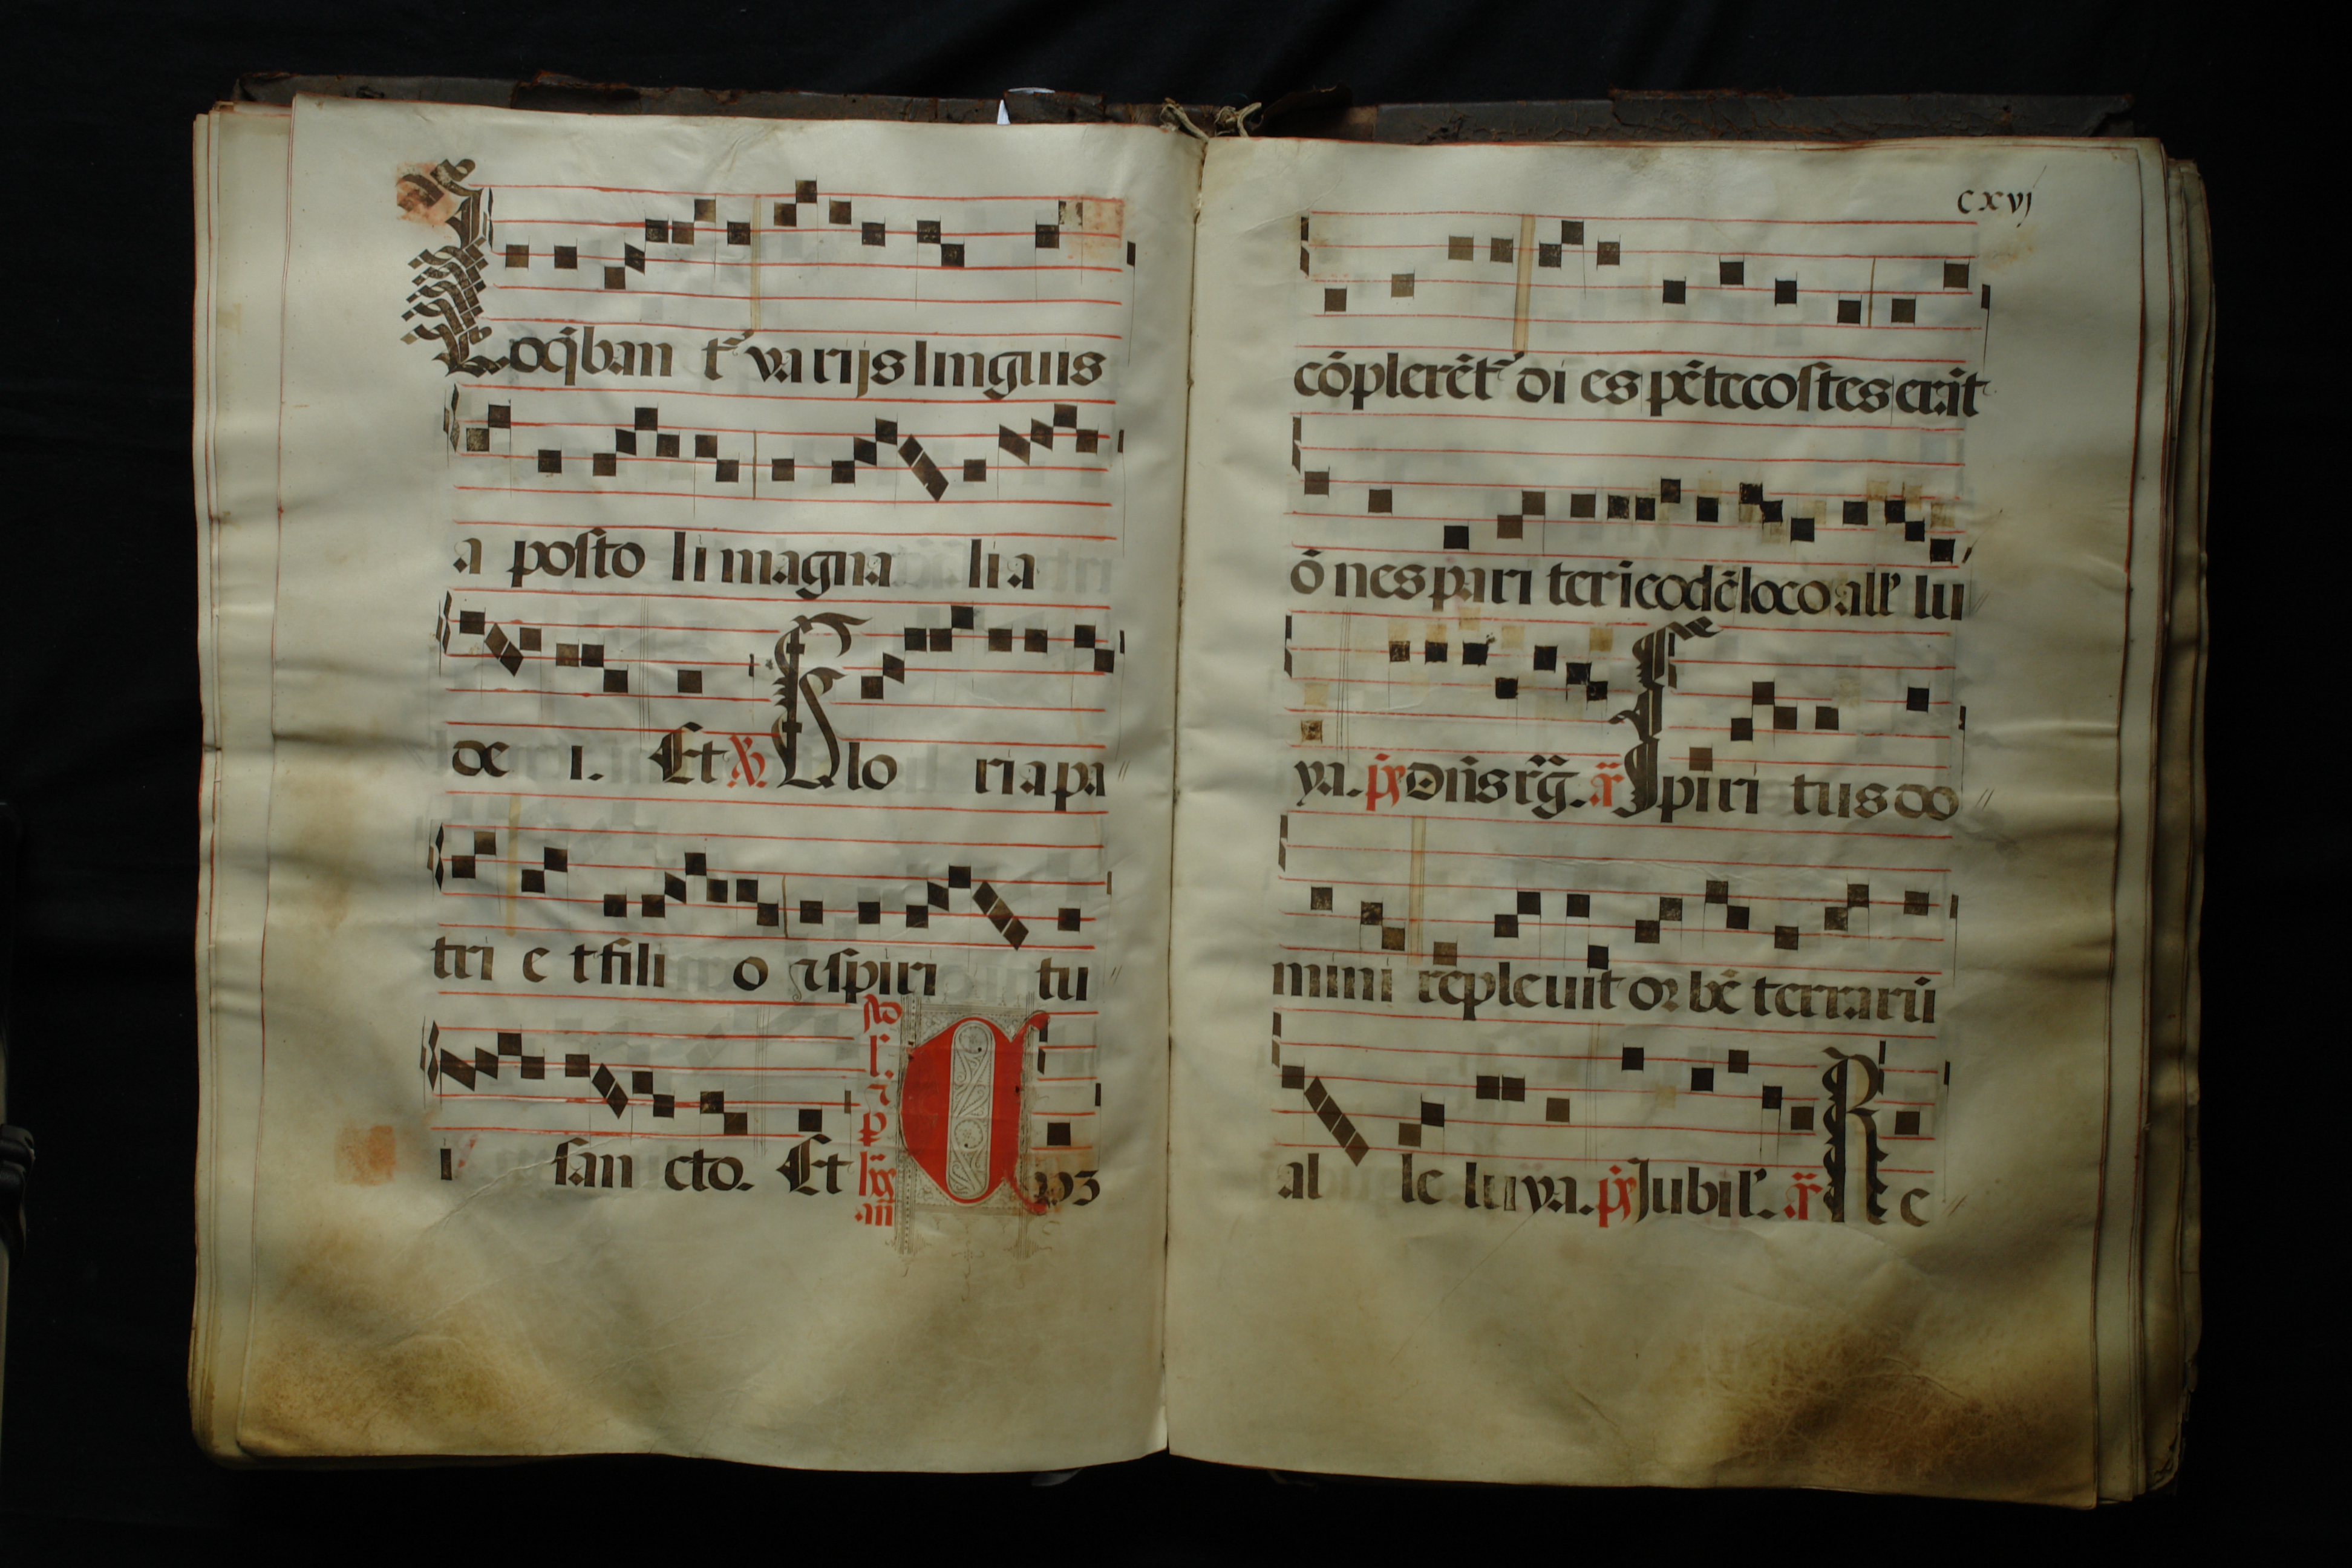 Loq̄ban t᷑ varijs linguis
a posto li magna lia
de i. Et ℣. Glo ria pa
tri e t fili o ⁊ spiri tu
i san cto. Et
ad
l'.
⁊
p̄
lx̄x
añ
Cū ꝫ
cxvj
cōplerēt᷑ di es pētecostes erāt
ō nes pari ter ī eodē loco all' lu
ya. p̄s Dñs rḡ. ā Spiri tus do
mini replevit orbē terrarū
al le lu ya. p̄s Jubil'. ā R e